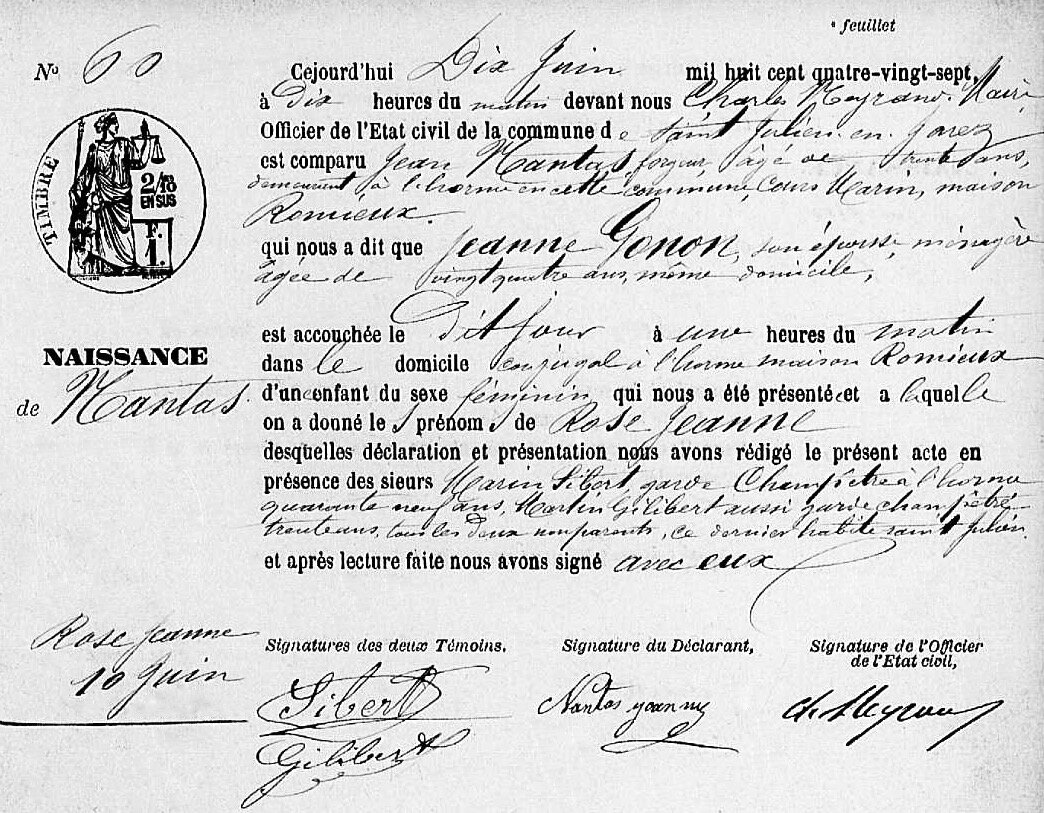 feuillet
No 60
Cejourd'hui Dix Juin mil huit cent quatre-vingt-sept,
à Dix heures du matin devant nous Charles Neyrand, Maire
Officier de l'Etat civil de la commune de Saint Julien-en-Jarez
est comparu Jean Nantas, forgeur, âgé de trente ans,
demeurant à l'horme en cette commune, Cours Marin, maison
Romieux.
qui nous a dit que Jeanne Gonon, son épouse, ménagère
âgée de vingt quatre ans, même domicile,
est accouchée le dit jour à une heures du matin
dans le domicile conjugal à l'horme maison Romieux
d'un enfant du sexe féminin qui nous a été présenté et a laquelle
on a donné les prénoms de Rose Jeanne
desquelles déclaration et présentation nous avons rédigé le présent acte en
présence des sieurs Marin Sibert, garde Champêtre à l'horme
quarante neuf ans, Martin Gilibert aussi garde champêtre
trente ans, tous les deux non parents, ce dernier habite saint Julien.
et après lecture faite nous avons signé avec eux
TIMBRE
2/10
EN SUS
F.
1.
NAISSANCE
de Nantas.
Rose Jeanne
10 Juin
Signatures des deux Témoins,
Sibert
Gilibert
Signature du Déclarant,
Nantas
Signature de l'Officier
de l'Etat civil,
Ch. Neyrand